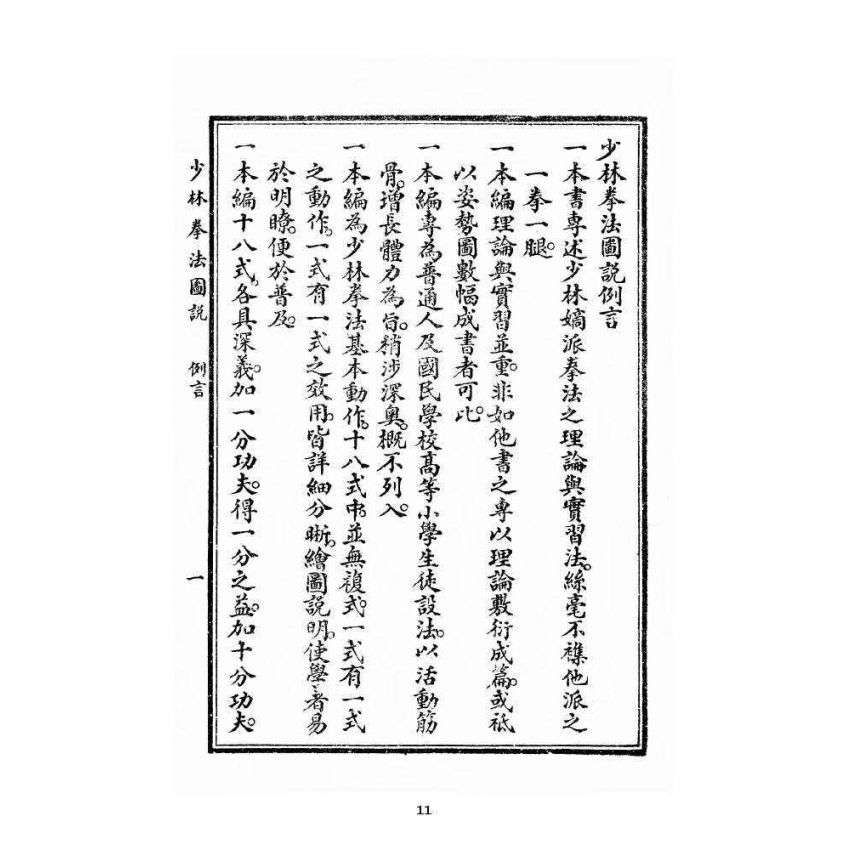 少林拳法圖說例言
一本書專述少林嫡派拳法之理論與實習法。絲毫不襍他派之
一拳一腿。
一本編理論與實習並重。非如他書之專以理論敷衍成篇。或祗
以姿勢圖數幅成書者可比。
一本編專為普通人及國民學校高等小學生徒設法。以活動筋
骨。增長體力為旨。稍涉深奧。概不列入。
一本編為少林拳法基本動作。十八式中。並無複式。一式有一式
之動作。一式有一式之效用。皆詳細分晰。繪圖說明。使學者易
於明瞭。便於普及。
一本編十八式。各具深義。加一分功夫。得一分之益。加十分功夫。
少林拳法圖說 例言 一
11